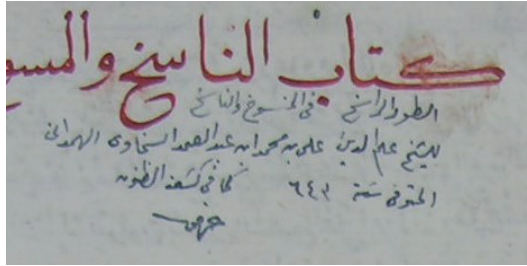 كتاب الناسخ والمنسو
الطود الراسخ في المنسوخ والناسخ
للشيخ علم الدين علي بن محمد ابن عبد الصمد السخاوي الهمداني
المتوفى سنة ٦٤٣ كما في كشف الظنون